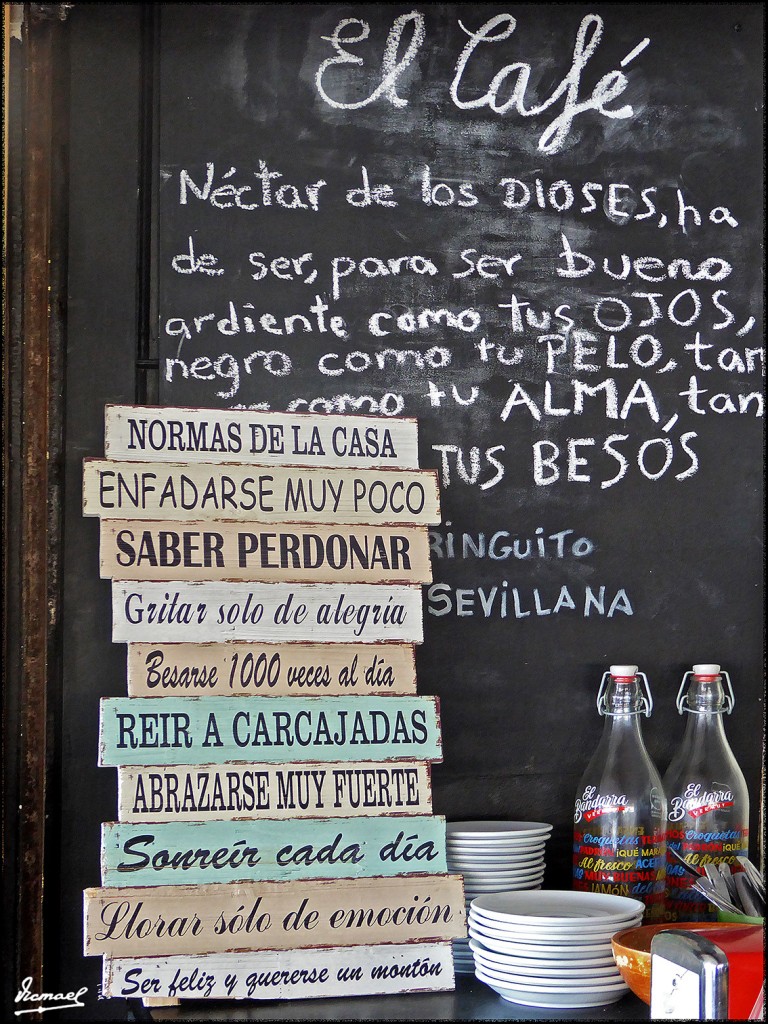 El Café
Néctar de los DIOSES, ha
de ser, para ser bueno
ardiente como tus OJOS,
negro como tu PELO, tan
como tu ALMA, tan
TUS BESÓS
RINGUITO
SEVILLANA
NORMAS DE LA CASA
ENFADARSE MUY POCO
SABER PERDONAR
Gritar solo de alegría
Besarse 1000 veces al día
REIR A CARCAJADAS
ABRAZARSE MUY FUERTE
Sonreír cada día
Llorar sólo de emoción
Ser feliz y quererse un montón
El Bandarra
Croquetas
¡QUÉ
Al fresco
MUY BUENAS
JAMÓN
El Bandarra
Croquetas
Al fresco
Vicmael